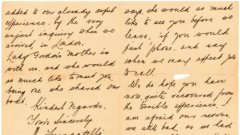 added to our already awful
experience, by the very
awful inquiry when we
arrived in London.
Lady Gordon's mother is
with us and she would
so much like to meet you,
being one who shared our
boat.
Kindest regards,
Yours sincerely
says she would so much
like to see you before we
leave, if you would
just 'phone, and say
when we may expect you
to call.
We do hope you have
now quite recovered from
the terrible experience. I
am afraid our nerves
are still bad, as we had